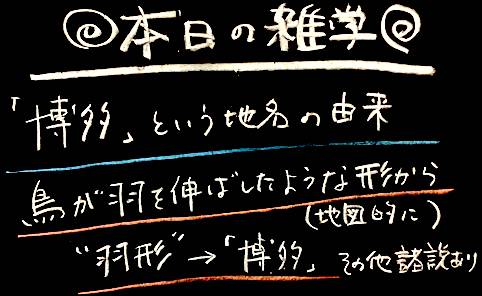 本日の雑学
「博多」という地名の由来
鳥が羽を伸ばしたような形から
(地図的に)
"羽形"→「博多」 その他諸説あり